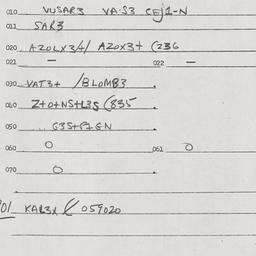 010 VUSAR3 VA·S3 CEJ1-N
011 SAR3
020 AZOLX3/4/ AZOX3+ (236
021 — 022 —
030 VAT3+ /BLOMB3
040 Z+O+NS+L3S (835
050 G3S+P1GN
060 O 061 O
070 O
01 KAR3X ( 059020